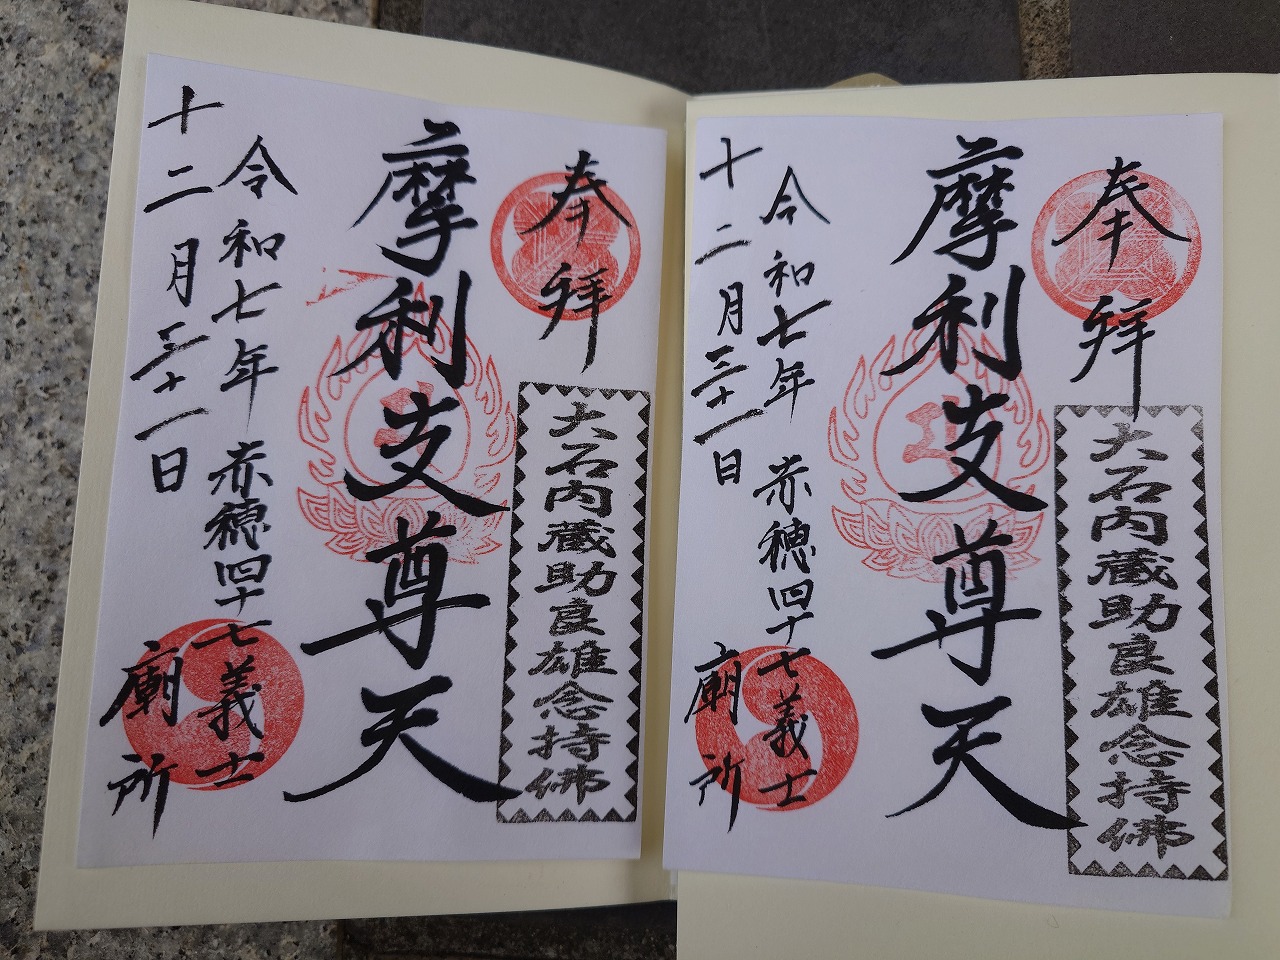 奉拝
大石内蔵助良雄念持佛
摩利支尊天
令和七年 赤穂四十七義士
十二月三十一日
廟所
奉拝
大石内蔵助良雄念持佛
摩利支尊天
令和七年 赤穂四十七義士
十二月三十一日
廟所